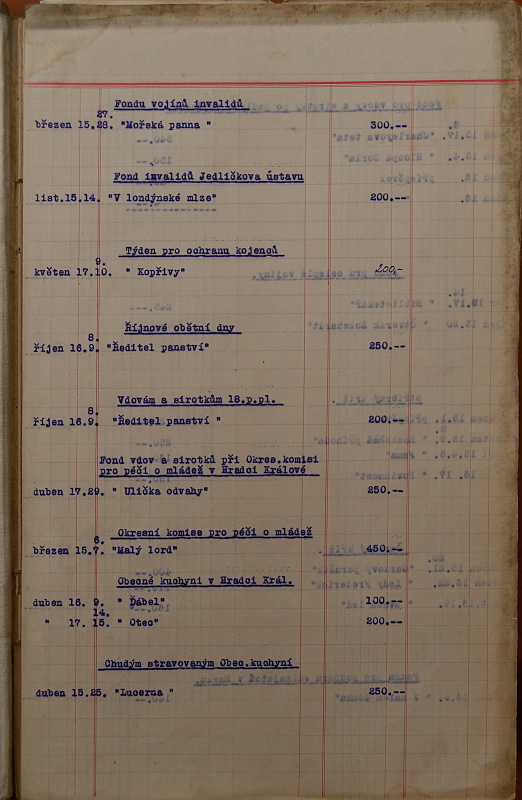 Fondu vojínů invalidů
27.
březen 15.28. "Mořská panna " 300.--
Fond invalidů Jedličkova ústavu
list.15.14. "V londýnské mlze" 200.--
Týden pro ochranu kojenců
9.
květen 17.10. " Kopřivy" 200,-
Říjnové obětní dny
8.
říjen 16.9. "Ředitel panství" 250.--
Vdovám a sirotkům 18.p.pl.
8.
říjen 16.9. "Ředitel panství " 200.--
Fond vdov a sirotků při Okres.komisi
pro péči o mládež v Hradci Králové
duben 17.29. " Ulička odvahy" 250.--
Okresní komise pro péči o mládež
6.
březen 15.7. "Malý lord" 450.--
Obecné kuchyni v Hradci Král.
duben 16. 9. " Ďábel" 100.--
14.
" 17. 15. " Otec" 200.--
Chudým stravovaným Obec.kuchyní
duben 15.25. "Lucerna " 250.--